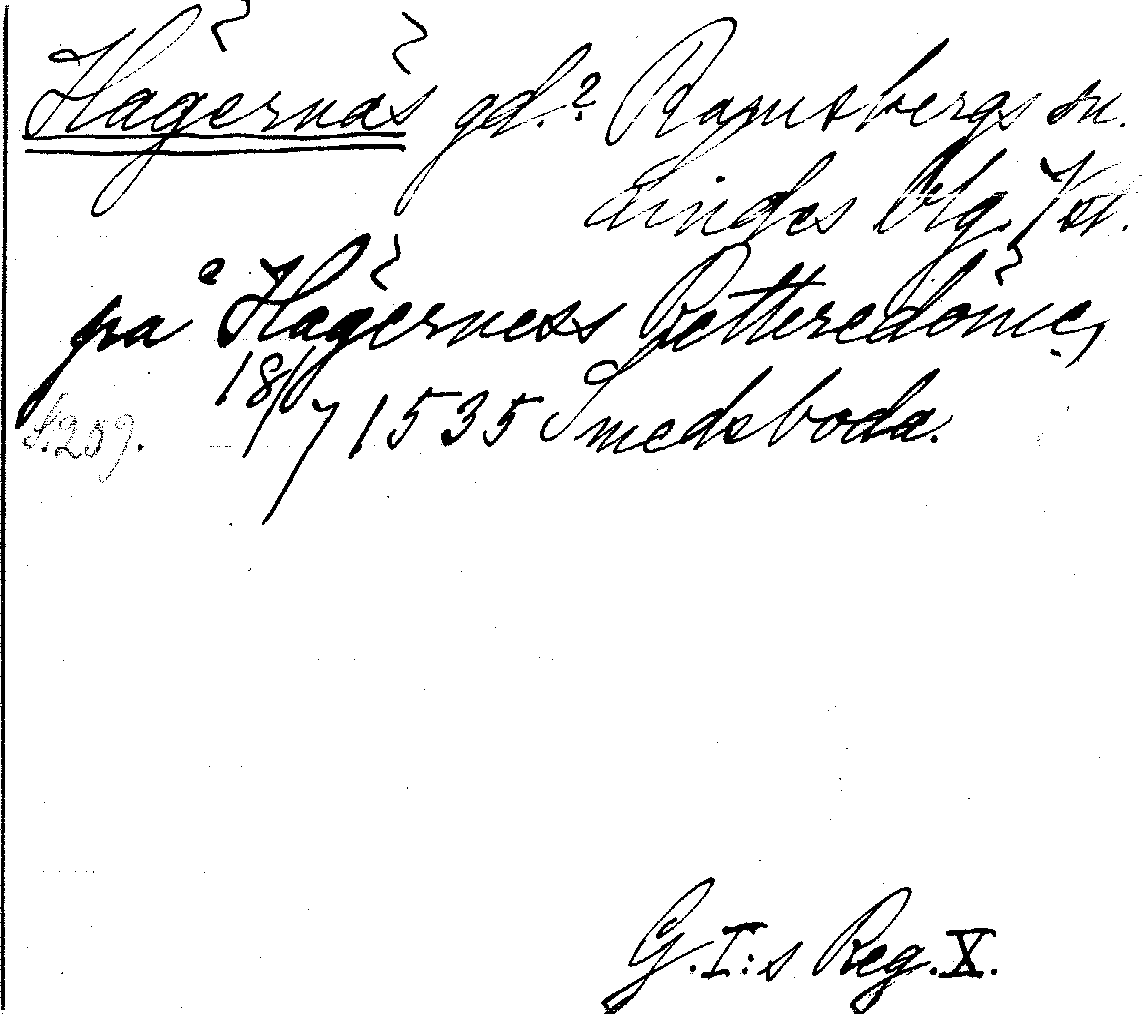 Hägernäs gd.? Ramsbergs sn.
Lindes blg. Vstl.
på Hägerness Retteredöme,
18/7 1535 Smedsboda.
S. 259.
G.I:s Reg. X.